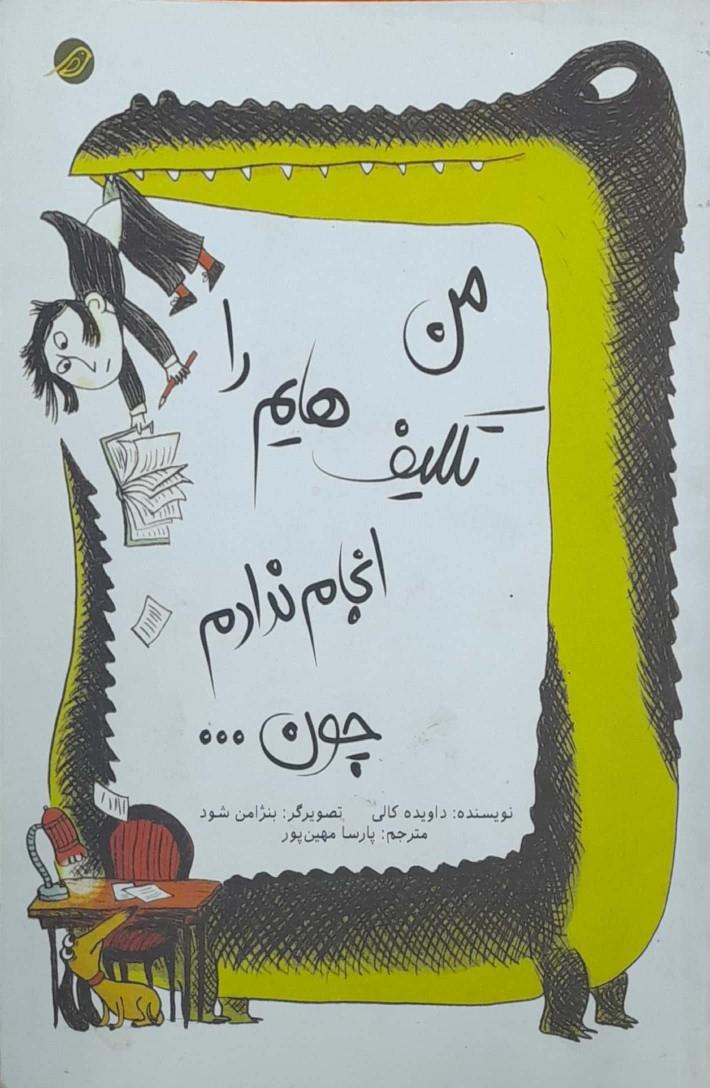 من
تکلیف هایم را
انجام ندادم
چون ...
نویسنده: داویده کالی تصویرگر: بنژامن شود
مترجم: پارسا مهین‌پور